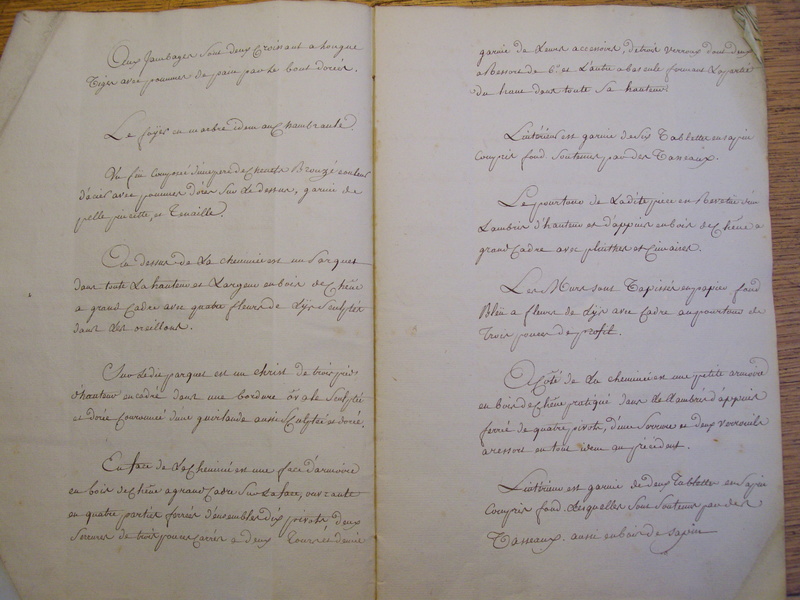 Aux Jambages sont deux Croissant a longue
Tiges avec pommes de pareu par le bout dorées.
Le foÿer en marbre idem au Chambranle.
Un feu composé d'une paire de Chenets Bronzé couleur
d'acier avec pommes dorés sur le dessus, garnie de
pelle pincette, et Tenaille.
Au dessus de La cheminée est un parquet
dans toute La hauteur et Largeur en bois de Chêne
a grand Cadre avec quatre fleurs de Lÿs Sculptée
dans les oreillons.
Sur Ledit parquet est un christ de trois pieds
d'hauteur encadré dans une bordure ovale Sculptée
et dorée Couronnée d'une guirlande aussi Sculptée et dorée.
En face de La Cheminée est une face d'armoire
en bois de Chêne a grand Cadre Sur La face, ouvrante
en quatre parties ferrées d'ensembles dix pivots, deux
Serrures de trois pouces Carrés a deux Tours et demie
garnie de Leurs accessoirs, de trois verroux dont deux
a Ressore de 6° et L'autre a bascule formant Lespectée
du haut dans toute Sa hauteur
L'intérieur est garnie de Six Tablettes en Sapin
Compris fond Soutenus par des Tasseaux.
Le pourtour de Ladite piece en Revetue d'un
Lambris d'hauteur et d'appuis en bois de Chêne a
grand Cadre avec plinthes et Cimaises.
Les Murs sont Tapissée en papier fond
Bleu a fleurs de Lÿs avec Cadre au pourtour de
Trois pouces de profil.
A Côté de La cheminée est une petite armoire
en bois de Chêne pratiqué dans le Lambris d'appuis
ferré de quatre pivots, d'une Serrure et deux verrouils
a ressort en tout idem au précédent.
L'intérieur est garnie de deux Tablettes en Sapin
Compris fond Lesquelles Sont Soutenus par des
Tasseaux. aussi en bois de Sapin